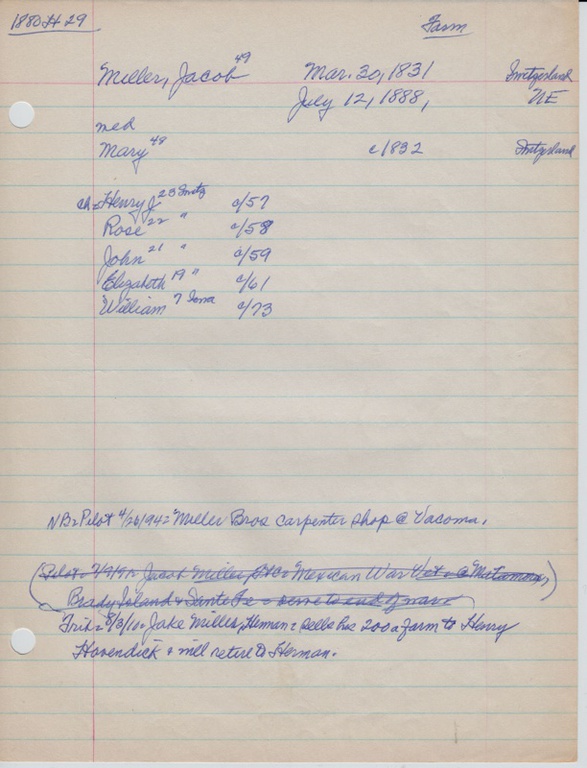 1880 H 29 Farm
Miller, Jacob 49 Mar. 30, 1831 Switzerland
July 12, 1888, NE
med
Mary 48 c1832 Switzerland
ch= Henry J 23 Switz c/57
Rose 22 " c/58
John 21 " c/59
Elizabeth 19 " c/61
William 7 Iowa c/73
NB= Pilot 4/26/94= Miller Bros carpenter shop @ Vacoma.
(Pilot= Jacob Miller, Mexican War Vet @
Brady Island & Santa Fe
Trib= 8/3/10= Jake Miller, Herman = sells his 200 a farm to Henry
Hovendick & will retire to Herman.